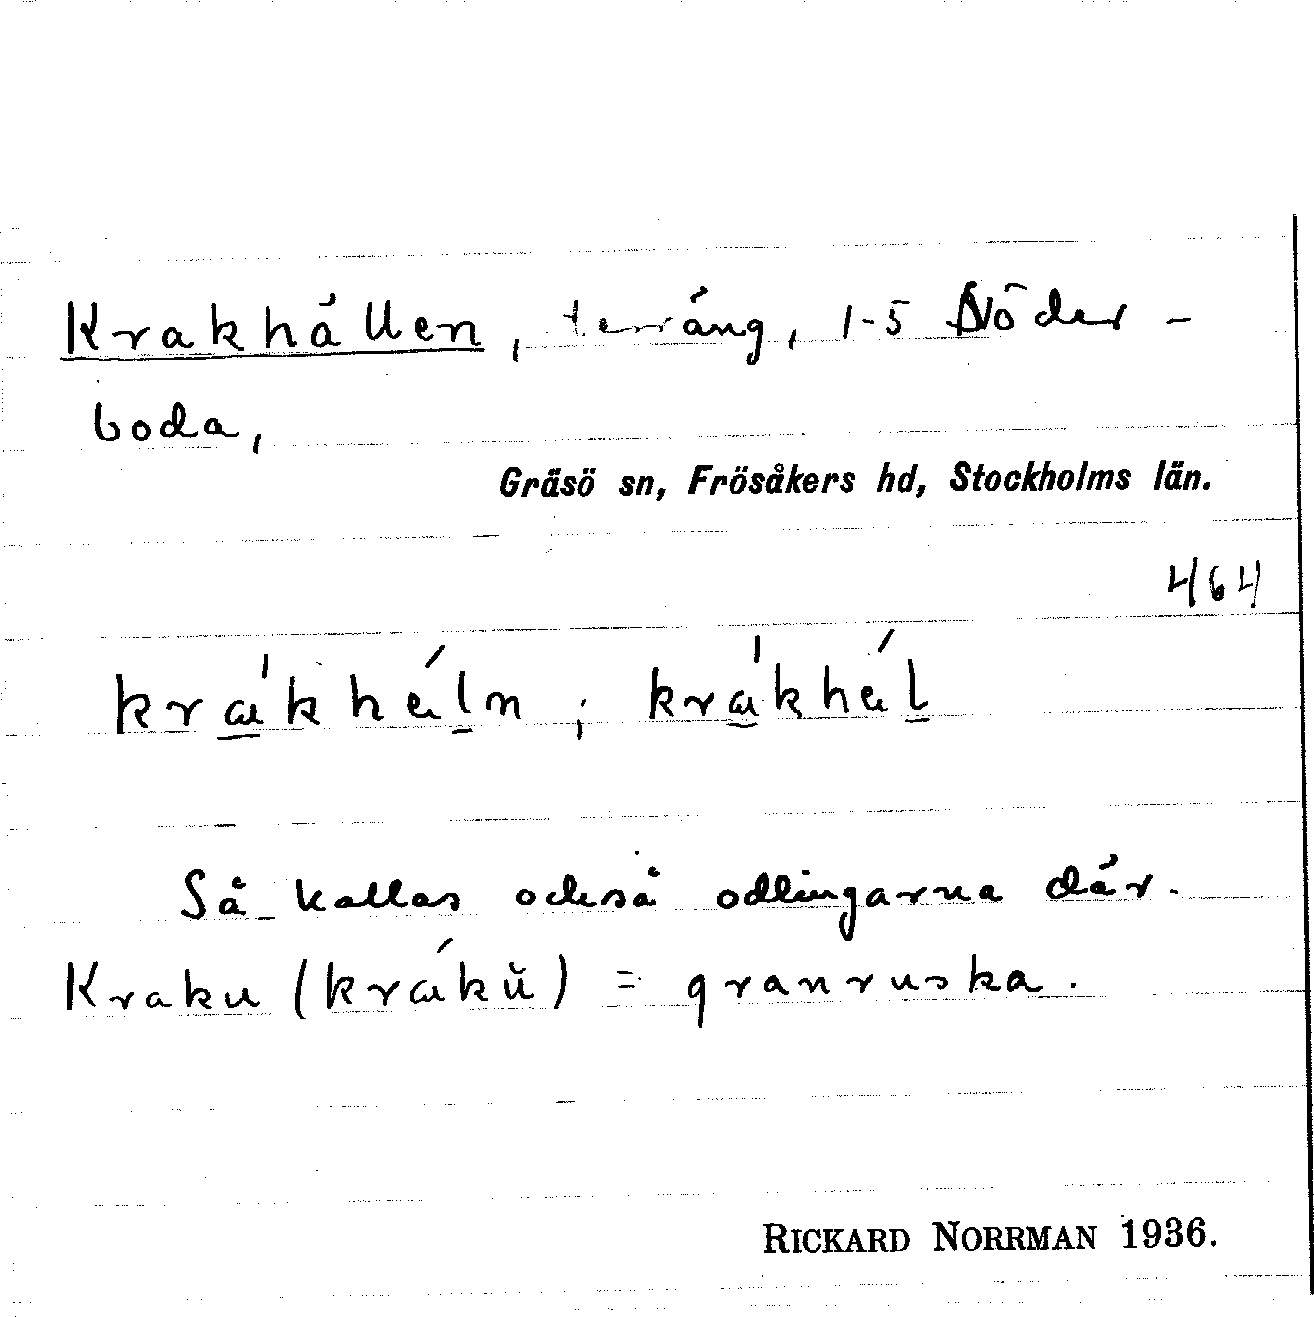 Krakhällen, terräng, 1-5 Nöder-
boda,
Gräsö sn, Frösåkers hd, Stockholms län.
464
kraˈkhæ´ln ; kraˈkhæ´l
Så kallas också odlingarna där.
Kraku (kra´kŭ) = granruska.
RICKARD NORRMAN 1936.